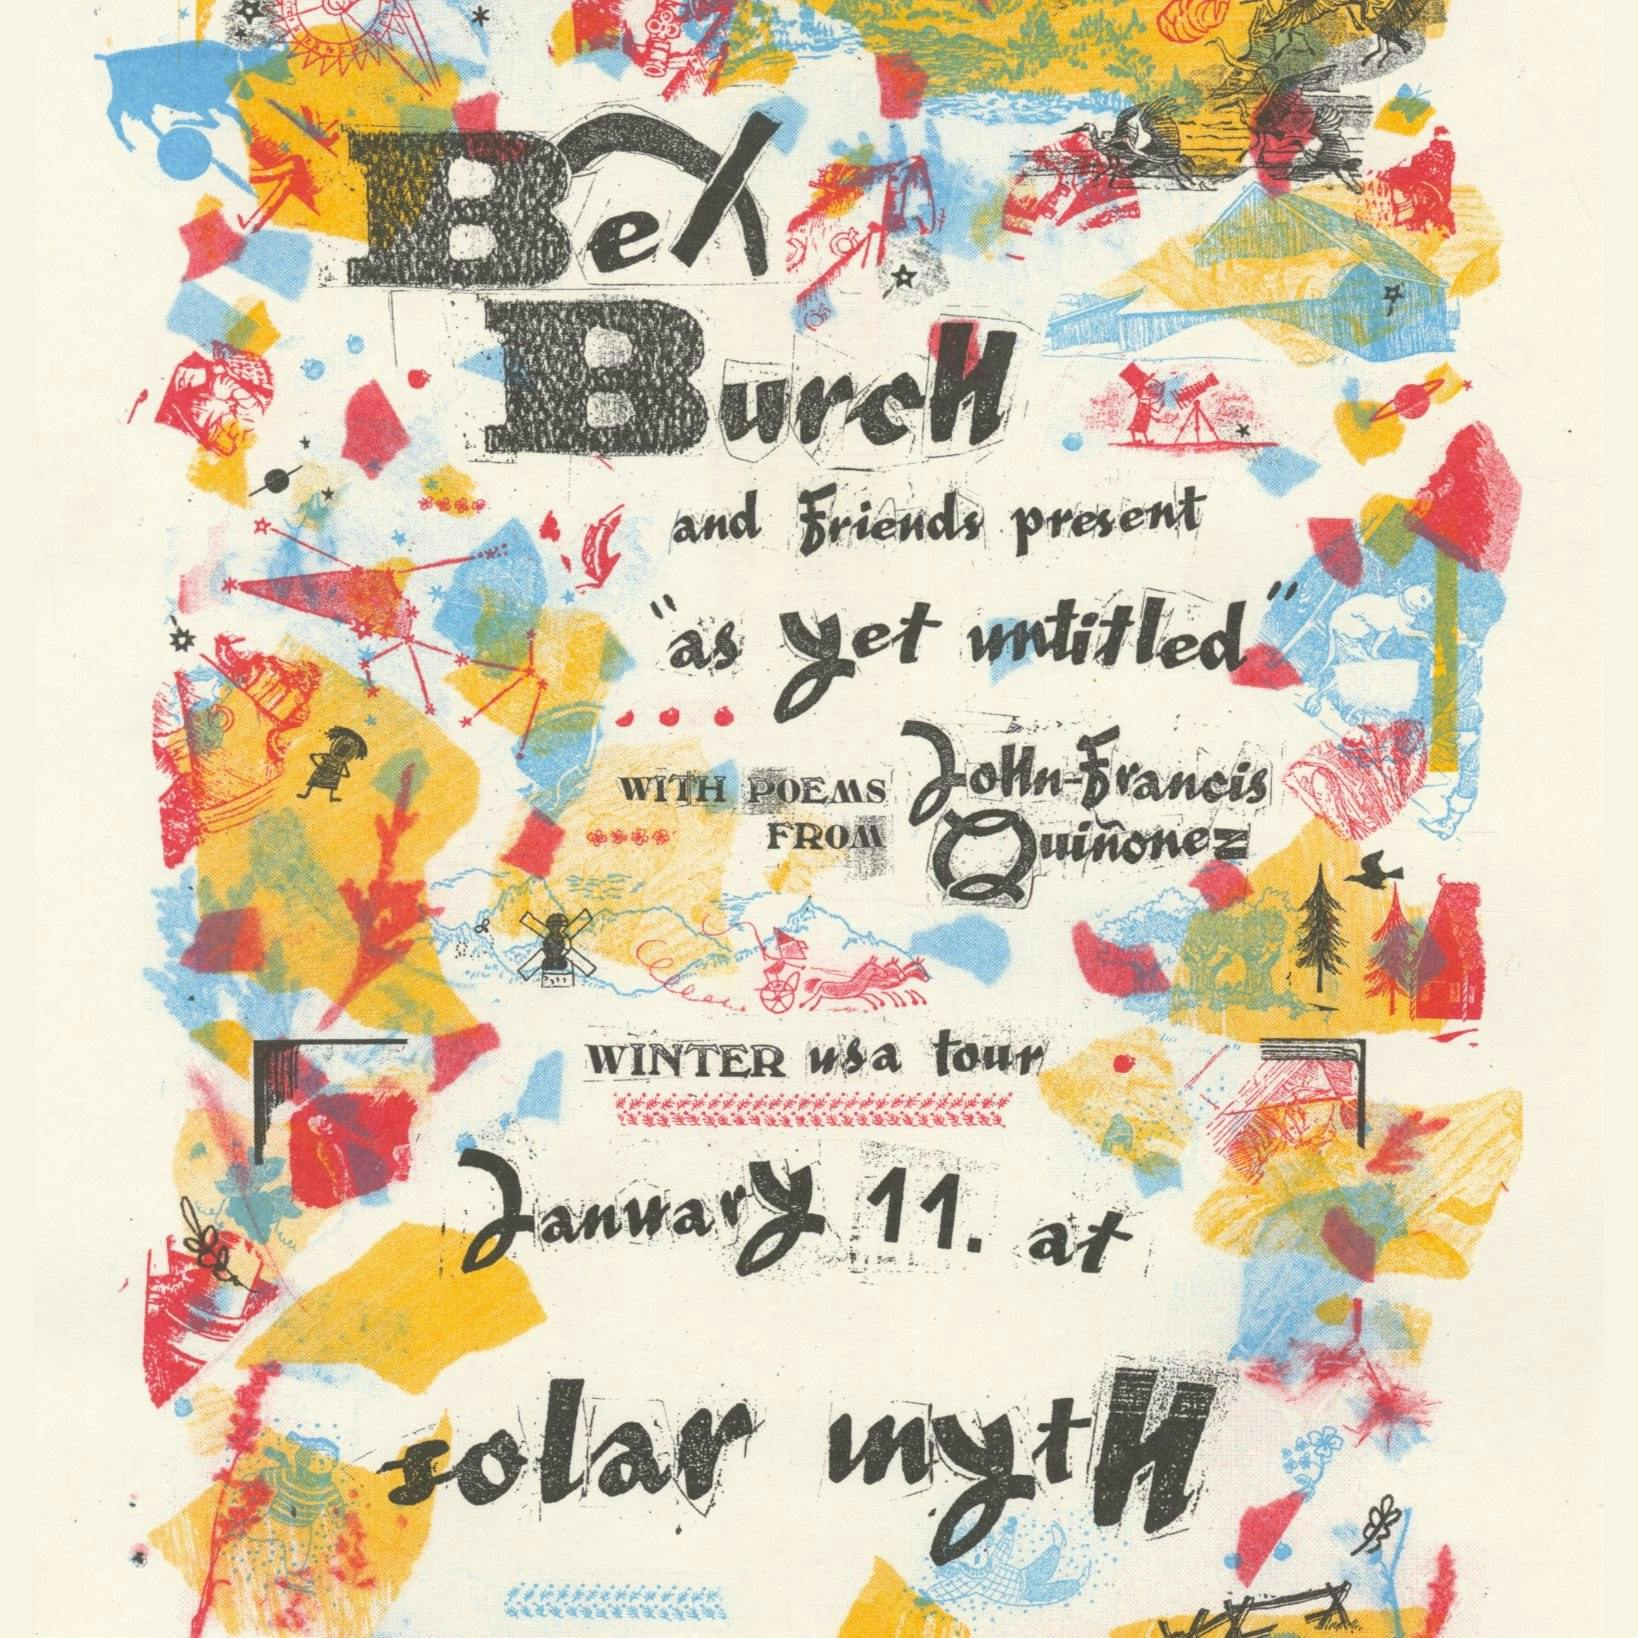 Bex
BurcH
and Friends present
"as yet untitled"
WITH POEMS
FROM
JoHn-Francis
Quiñonez
WINTER usa tour
January 11. at
solar mytH